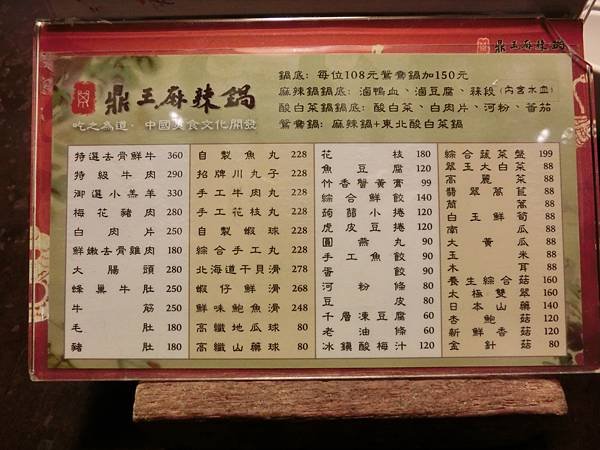 鼎王麻辣鍋
鍋底：每位108元鴛鴦鍋加150元
鼎王麻辣鍋
吃之為道．中國美食文化開發
麻辣鍋鍋底：滷鴨血、滷豆腐、蒜段(內含水血)
酸白菜鍋鍋底：酸白菜、白肉片、河粉、番茄
鴛鴦鍋：麻辣鍋+東北酸白菜鍋
特選去骨鮮牛 360
特級牛肉 290
御選小羔羊 330
梅花豬肉 280
白肉片 250
鮮嫩去骨雞肉 180
大腸頭 280
蜂巢牛肚 250
牛筋 250
毛肚 180
豬肚 180
自製魚丸 228
招牌川丸子 228
手工牛肉丸 228
手工花枝丸 228
自製蝦球 228
綜合手工丸 228
北海道干貝滑 278
蝦仔鮮滑 268
鮮味鮑魚滑 248
高纖地瓜球 80
高纖山藥球 80
花枝 180
魚豆腐 120
竹香蟹黃膏 99
綜合鮮餃 140
蒟蒻小捲 120
虎皮豆捲 120
圓燕丸 90
手工魚餃 90
蛋餃 90
河粉條 60
豆皮 80
千層凍豆腐 60
老油條 60
冰鎮酸梅汁 120
綜合蔬菜盤 199
翠玉大白菜 88
高麗菜 88
翡翠萵苣 88
茼蒿 88
白玉鮮筍 88
南瓜 88
大黃瓜 88
玉米 88
木耳 88
養生綜合菇 160
太極雙翠 160
日本山藥 140
杏鮑菇 88
新鮮香菇 88
金針菇 80